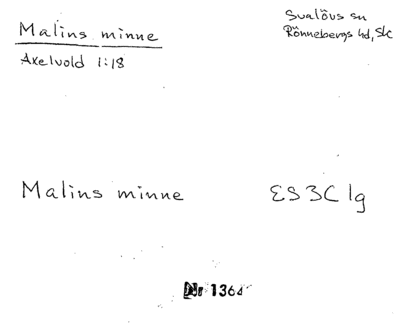 Malins minne
Axelvold 1:18
Svalövs sn
Rönnebergs hd, Sk
Malins minne
ES 3C 1g
Nr 1364